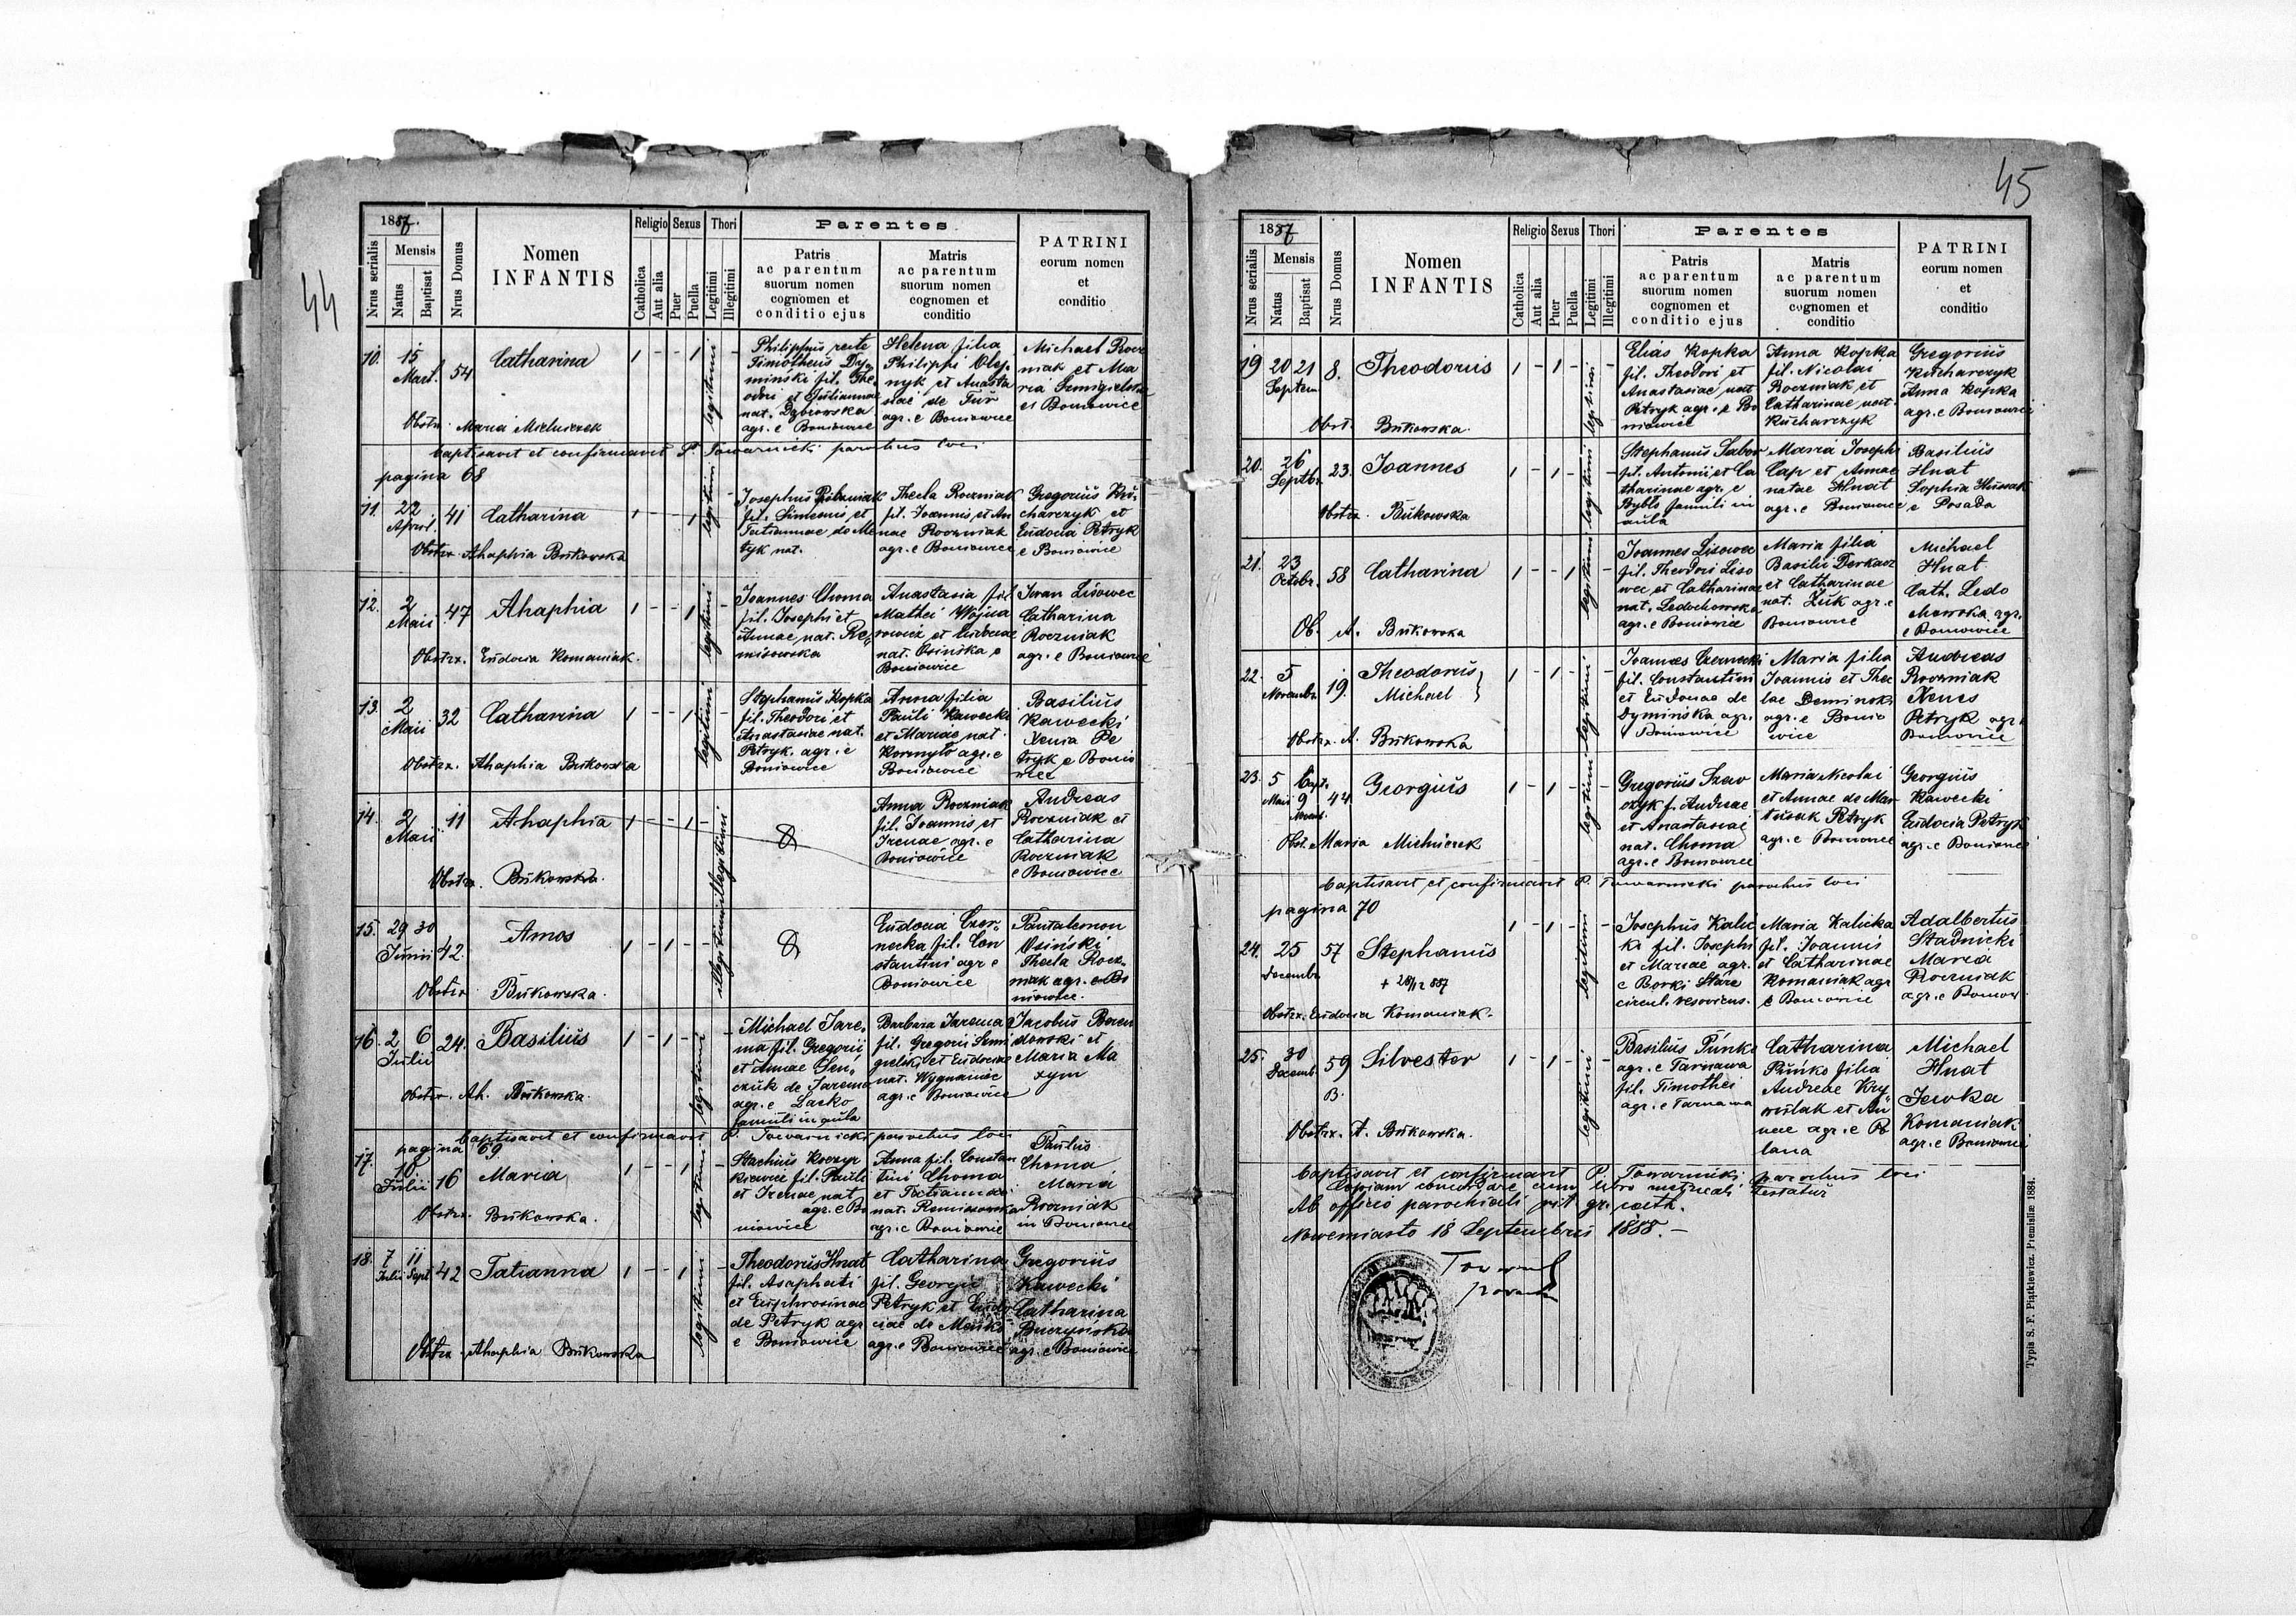 44
1887.
Nrus serialis
Mensis
Natus
Baptisat
Nrus Domus
Nomen
INFANTIS
Religio
Catholica
Aut alia
Sexus
Puer
Puella
Thori
Legitimi
Illegitimi
Parentes
Patris
ac parentum
suorum nomen
cognomen et
conditio ejus
Matris
ac parentum
suorum nomen
cognomen et
conditio
PATRINI
eorum nomen
et
conditio
10. 15 Mart. 54 Catharina 1 - - 1 legitimi -
Obstr. Maria Michniczek
Philippus recte
Timotheus Dy-
minski fil. The
odori et Juliannae
nat. Dąbrowska
agr. e Boniowice
Helena filia
Philippi Olej-
nyk et Anasta
siae de Fur
agr. e Boniowice
Michael Rocz
niak et Ma
ria Szmigielska
et Boniowice
baptisavit et confirmavit P. Towarnicki parochus loci
pagina 68
11. 22 April. 41 Catharina 1 - - 1 legitimi -
Obstr. Ahaphia Bukowska
Josephus
fil. Simeonis et
Tatiannae de Me
tyk nat.
Thecla Roczniak
fil. Joannis et An
nae Roczniak
agr. e Boniowice
Gregorius Ku-
charczyk et
Eudocia Petryk
e Boniowice
12. 2 Maii 47 Ahaphia 1 - - 1 legitimi -
Obstrx. Eudocia Romaniak.
Joannes Choma
fil. Josephi et
Annae nat. Re-
misowska
Anastasia fil
Mathei Wojna
rowicz et Eudociae
nat. Osinska e
Boniowice
Iwan Lisowec
Catharina
Roczniak
agr. e Boniowice
13. 2 Maii 32 Catharina 1 - - 1 legitimi -
Obstrx. Ahaphia Bukowska
Stephanus Kopka
fil. Theodori et
Anastasiae nat.
Petryk. agr. e
Boniowice
Anna filia
Pauli Kawecki
et Mariae nat.
Kormyto agr. e
Boniowice
Basilius
Kawecki
Xenia Pe
tryk e Bonio
wice
14. 2 Maii 11 Ahaphia 1 - - 1 - illegitimi
Obstrx. Bukowska.
Anna Roczniak
fil. Joannis et
Irenae agr. e
Boniowice
Andreas
Roczniak et
Catharina
Roczniak
e Boniowice
15. 29 30 Junii 42. Amos 1 - 1 - - illegitimi
Obstrx Bukowska.
Eudocia Czer-
necka fil. Con
stantini agr e
Boniowice
Pantalemon
Osinski
Thecla Rocz-
niak agr. e Bo
niowice.
16. 2 6 Julii 24. Basilius 1 - 1 - legitimi -
Obstrx. Ah. Bukowska.
Michael Jare-
ma fil. Gregorii
et Annae Sen-
czuk de Jarema
agr. e Lacko
famuli in aula
Barbara Jarema
fil. Gregorii Szmi
gielski et Eudociae
nat. Wygnaniec
agr. e Boniowice
Jacobus Beren
dowski et
Maria Ma
xym
baptisavit et confirmavit P. Towarnicki parochus loci
pagina 69
17. 10. Julii 16 Maria 1 - - 1 legitimi -
Obstrx. Bukowska.
Stachius Koczyr
kiewicz fil. Pauli
et Irenae nat
agr. e Bo
niowice
Anna fil. Constan
tini Choma
et Tatiannae
nat. Remisowska
agr. e Boniowice
Paulus
Choma
Maria
Roczniak
in Boniowice
18. 7 Julii 11 Sept 42 Tatianna 1 - - 1 legitimi -
Obstrx. Ahaphia Bukowska
Theodorus Hnat
fil. Asaphati
et Euphrosinae
de Petryk agr
e Boniowice
Catharina
fil. Georgii
Petryk et Eudo
ciae de Menko
agr. e Boniowice
Gregorius
Kawecki
Catharina
Buczynska
agr. e Boniowice
45
1887
Nrus serialis
Mensis
Natus
Baptisat
Nrus Domus
Nomen
INFANTIS
Religio
Catholica
Aut alia
Sexus
Puer
Puella
Thori
Legitimi
Illegitimi
Parentes
Patris
ac parentum
suorum nomen
cognomen et
conditio ejus
Matris
ac parentum
suorum nomen
cognomen et
conditio
PATRINI
eorum nomen
et
conditio
19 20 21 Septem. 8. Theodorus 1 - 1 - legitimi -
Obst. Bukowska.
Elias Kopka
fil. Theodori et
Anastasiae nat
Petryk agr. e Bo
niowice
Anna Kopka
fil. Nicolai
Roczniak et
Catharinae nat.
Kucharczyk
Gregorius
Kucharczyk
Anna Kopka
agr. e Boniowice
20. 26 Septbr. 23. Joannes 1 - 1 - legitimi -
Obstrx. Bukowska
Stephanus Sabor
fil. Antonii et Ca
tharinae agr. e
Rybło famuli in
aula
Maria Josephi
Cap et Annae
natae Hnat
agr. e Boniowice
Basilius
Hnat
Sophia Hussak
e Posada
21. 23 Octobr. 58 Catharina 1 - - 1 legitimi -
Ob. A. Bukowska
Joannes Lisowec
fil. Theodori Liso
wec et Catharinae
nat. Ledochowska
agr. e Boniowice
Maria filia
Basilii Derkacz
et Catharinae
nat. Żuk agr. e
Boniowice
Michael
Hnat
Cath. Ledo
chowska agr.
e Boniowice
22. 5 Novembr. 19. Theodorus
Michael } 1 - 1 - legitimi -
Obstrx. A. Bukowska
Joannes Czernecki
fil. Constantini
et Eudociae de
Dyminska agr.
e Boniowice
Maria filia
Joannis et Thec
lae Deminski
agr. e Bonio
wice
Andreas
Roczniak
Xenes
Petryk agr.
Boniowice
23. 5 Maii bapt. 9 44 Georgius 1 - 1 - legitimi -
Obst. Maria Michniczek
Gregorius Szew
czyk f. Andreae
et Anastasiae
nat. Choma
agr. e Boniowice
Maria Nicolai
et Annae de Mar
tusak Petryk
agr. e Boniowice
Georgius
Kawecki
Eudocia Petryk
agr. e Boniowice
baptisavit et confirmavit P. Towarnicki parochus loci
pagina 70
24. 25 Decembr. 57 Stephanus 1 - 1 - legitimi -
+ 28/12 887
Obstrx. Eudocia Romaniak.
Josephus Kalic
ki fil. Josephi
et Mariae agr.
e Borki Stare
circul. resoviens.
Maria Kalicka
fil. Joannis
et Catharinae
Romaniak agr
e Boniowice
Adalbertus
Stadnicki
Maria
Roczniak
agr. e Boniow.
25. 30 Decemb. 59 B. Silvester 1 - 1 - legitimi -
Obstrx. A. Bukowska.
Basilius Punko
agr. e Tarnawa
fil. Timothei
agr. e Tarnawa
Catharina
Punko filia
Andreae Kry
wulak et An
nae agr. e Po
lana
Michael
Hnat
Jewka
Romaniak
agr. e Boniowice
baptisavit et confirmavit P. Towarnicki parochus loci
Copiam concordare cum libro metricali testatur
Ab officio parochiali rit. gr. cath.
Nowemiasto 18 Septembris 1888.-
Typis S. F. Piątkiewicz. Premisliæ 1884.